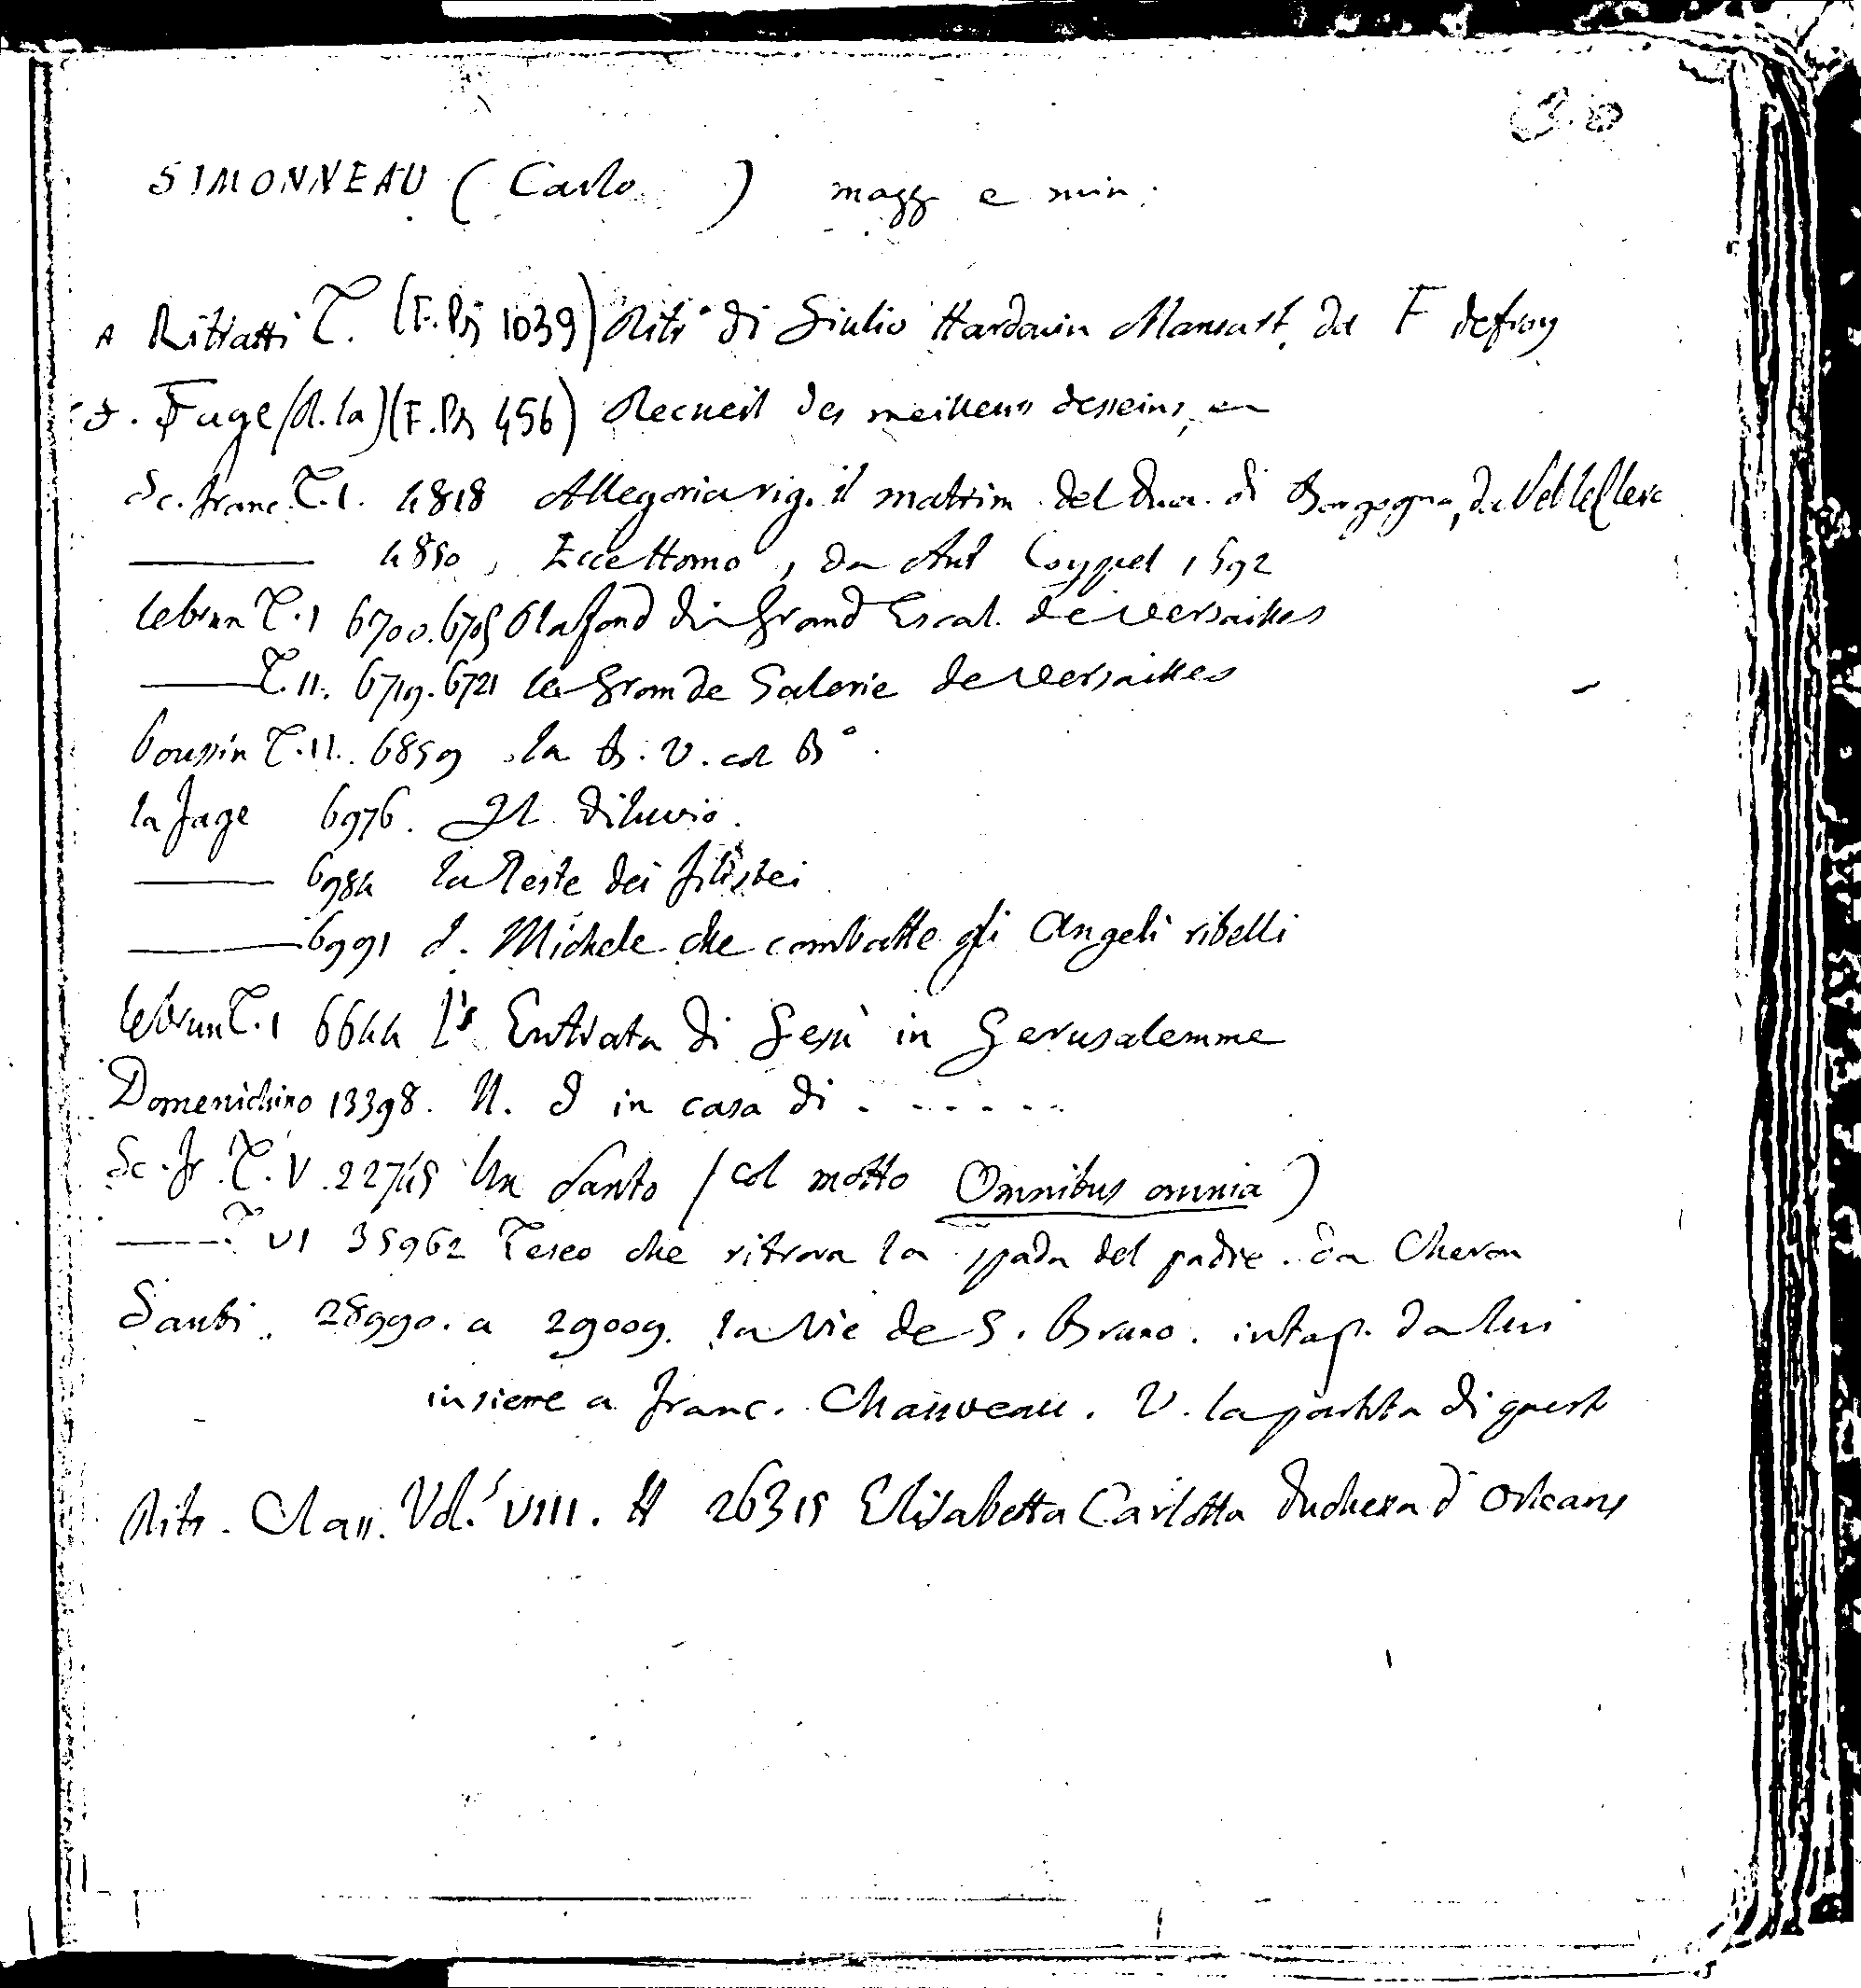 SIMONNEAU (Carlo ) magg e min.
A Ritratti T. (F. Pi 1039) Ritr° di Giulio Hardouin Mansart, da F detroy
. Fage (R. la) (F. Pi 456) Recueil des meilleurs desseins, en
Sc. franc. T. I. 4818 Allegoria rig. il matrim. del Duca di Borgogna, da Seb leClerc
——— 4850, Ecce Homo, da Ant Coypel 1592
lebrun T. I 6700. 6705 Plafond du Grand Escal. de Versailles
——— T. II. 6719. 6721 la Grande Galerie de Versailles
Poussin T. II. 6859 la B. V. col B°.
la fage 6976. Il diluvio.
——— 6984 la Peste dei filistei
——— 6991 S. Michele che combatte gli Angeli ribelli
lebrun T. I 6644 L' Entrata di Gesù in Gerusalemme
Domenichino 13398. N. S in casa di . - - - - -
Sc. fr. T. V. 22745 Un Santo (col motto Omnibus omnia)
——— T VI 35962 Teseo che ritrova la spada del padre. da Cheron
Santi. 28990. a 29009. la Vie de S. Bruno. intag. da lui
insieme a franc. Chauveau. V. la partita di questo
Ritr. Class. Vol. VIII. H 26315 Elisabetta Carlotta duchessa d' Orleans